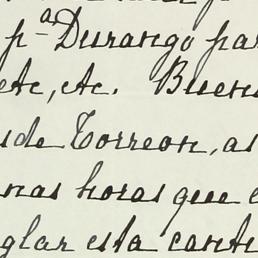 pª Durango par
etc, etc. Buena
sde Torreon, as
nas horas que e
glar esta cont